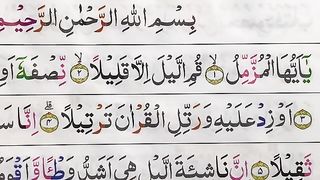 بِسْمِ اللهِ الرَّحْمٰنِ الرَّحِيْمِ
يٰۤاَيُّهَا الْمُزَّمِّلُ ۙ﴿۱﴾ قُمِ الَّيْلَ اِلَّا قَلِيْلًا ۙ﴿۲﴾ نِّصْفَهٗۤ اَوِ
﴿۳﴾ اَوْ زِدْ عَلَيْهِ وَرَتِّلِ الْقُرْاٰنَ تَرْتِيْلًا ؕ﴿۴﴾ اِنَّا سَ
ثَقِيْلًا ﴿۵﴾ اِنَّ نَاشِئَةَ الَّيْلِ هِيَ اَشَدُّ وَطْـًٔا وَّاَقْوَمُ